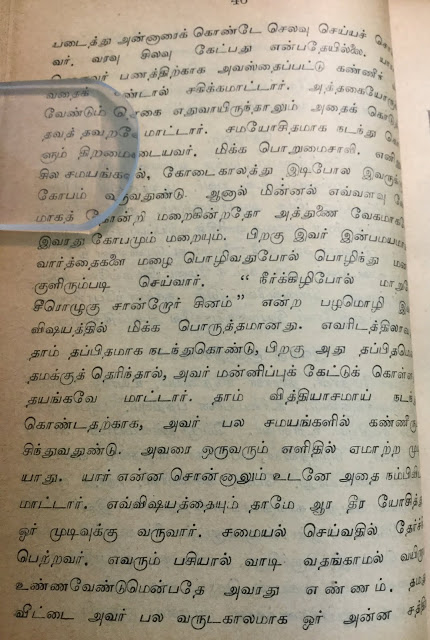 40
படைத்து அன்னாரைக் கொண்டே செலவு செய்யச்
வர். வரவு செலவு கேட்பது என்பதேயில்லை.
பணத்திற்காக அவஸ்தைப்பட்டு கண்ணீர்
கண்டால் சகிக்கமாட்டார். அத்தகையோரு
வேண்டும் தொகை எதுவாயிருந்தாலும் அதைக்
தவறவேமாட்டார். சமயோசிதமாக நடந்து
ளும் திறமையுடையவர். மிக்க பொறுமைசாலி.
சில சமயங்களில், கோடைகாலத்து இடிபோல இவருக்கு
கோபம் வருவதுண்டு. ஆனால் மின்னல் எவ்வளவு
மாகத் தோன்றி மறைகின்றதோ அத்துணை வேகமாக
இவரது கோபமும் மறையும். பிறகு இவர் இன்பமயமா
வார்த்தைகளை மழை பொழிவதுபோல் பொழிந்து மன
குளிரும்படி செய்வார். “ நீர்க்கிழிபோல் மாறு
சீரொழுகு சான்றோர் சினம்” என்ற பழமொழி இ
விஷயத்தில் மிக்க பொருத்தமானது. எவரிடத்திலா
தாம் தப்பிதமாக நடந்துகொண்டு, பிறகு அது தப்பித
தமக்குத் தெரிந்தால், அவர் மன்னிப்புக் கேட்டுக் கொள்ள
தயங்கவே மாட்டார். தாம் வித்தியாசமாய் நடந்
கொண்டதற்காக, அவர் பல சமயங்களில் கண்ணீரு
சிந்துவதுண்டு. அவரை ஒருவரும் எளிதில் ஏமாற்ற மு
யாது. யார் என்ன சொன்னாலும் உடனே அதை நம்பிவி
மாட்டார். எவ்விஷயத்தையும் தாமே ஆர தீர யோசித்
ஓர் முடிவுக்கு வருவார். சமையல் செய்வதில் தேர்ச்சி
பெற்றவர். எவரும் பசியால் வாடி வதங்காமல் வயிறா
உண்ணவேண்டுமென்பதே அவரது எண்ணம். தமது
வீட்டை அவர் பல வருடகாலமாக ஓர் அன்ன சத்தி